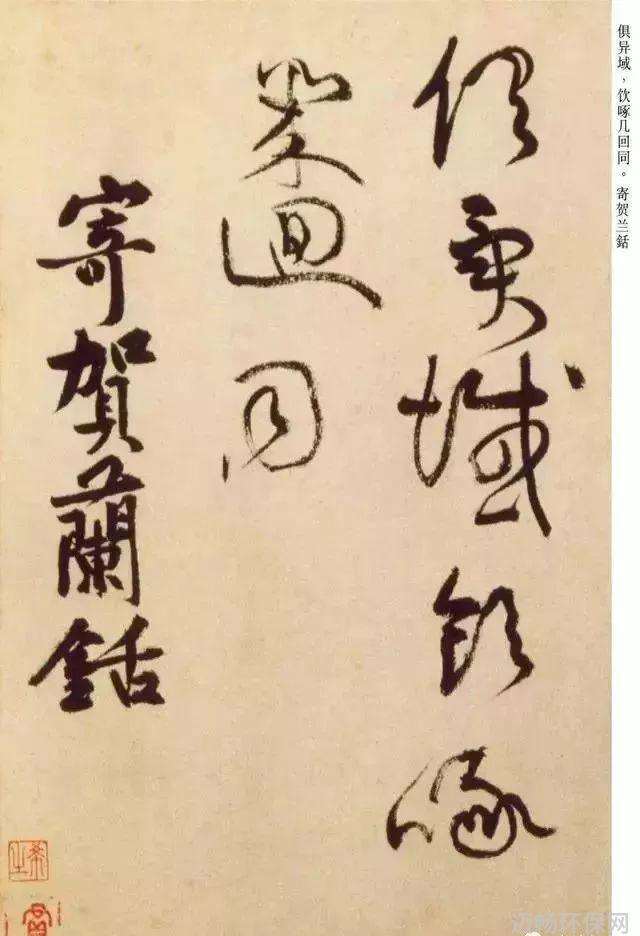 俱异域，饮啄几回同。寄贺兰銛
俱異域飲啄
幾迴同
寄賀蘭銛
迈畅环保网